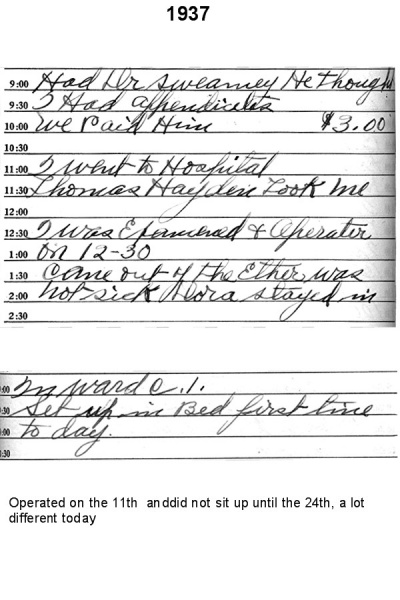 1937
9:00 Had Dr Swearney He though
9:30 I Had appendicites
10:00 We Paid Him $3.00
10:30
11:00 I went to Hospital
11:30 Thomas Hayden Took me
12:00
12:30 I was Examened & Operater
1:00 on 12-30
1:30 Came out of the Ether was
2:00 not sick Nora stayed in
2:30
:00 In ward C.1.
:30 Set up in Bed first time
:00 to day.
:30
Operated on the 11th anddid not sit up until the 24th, a lot
different today